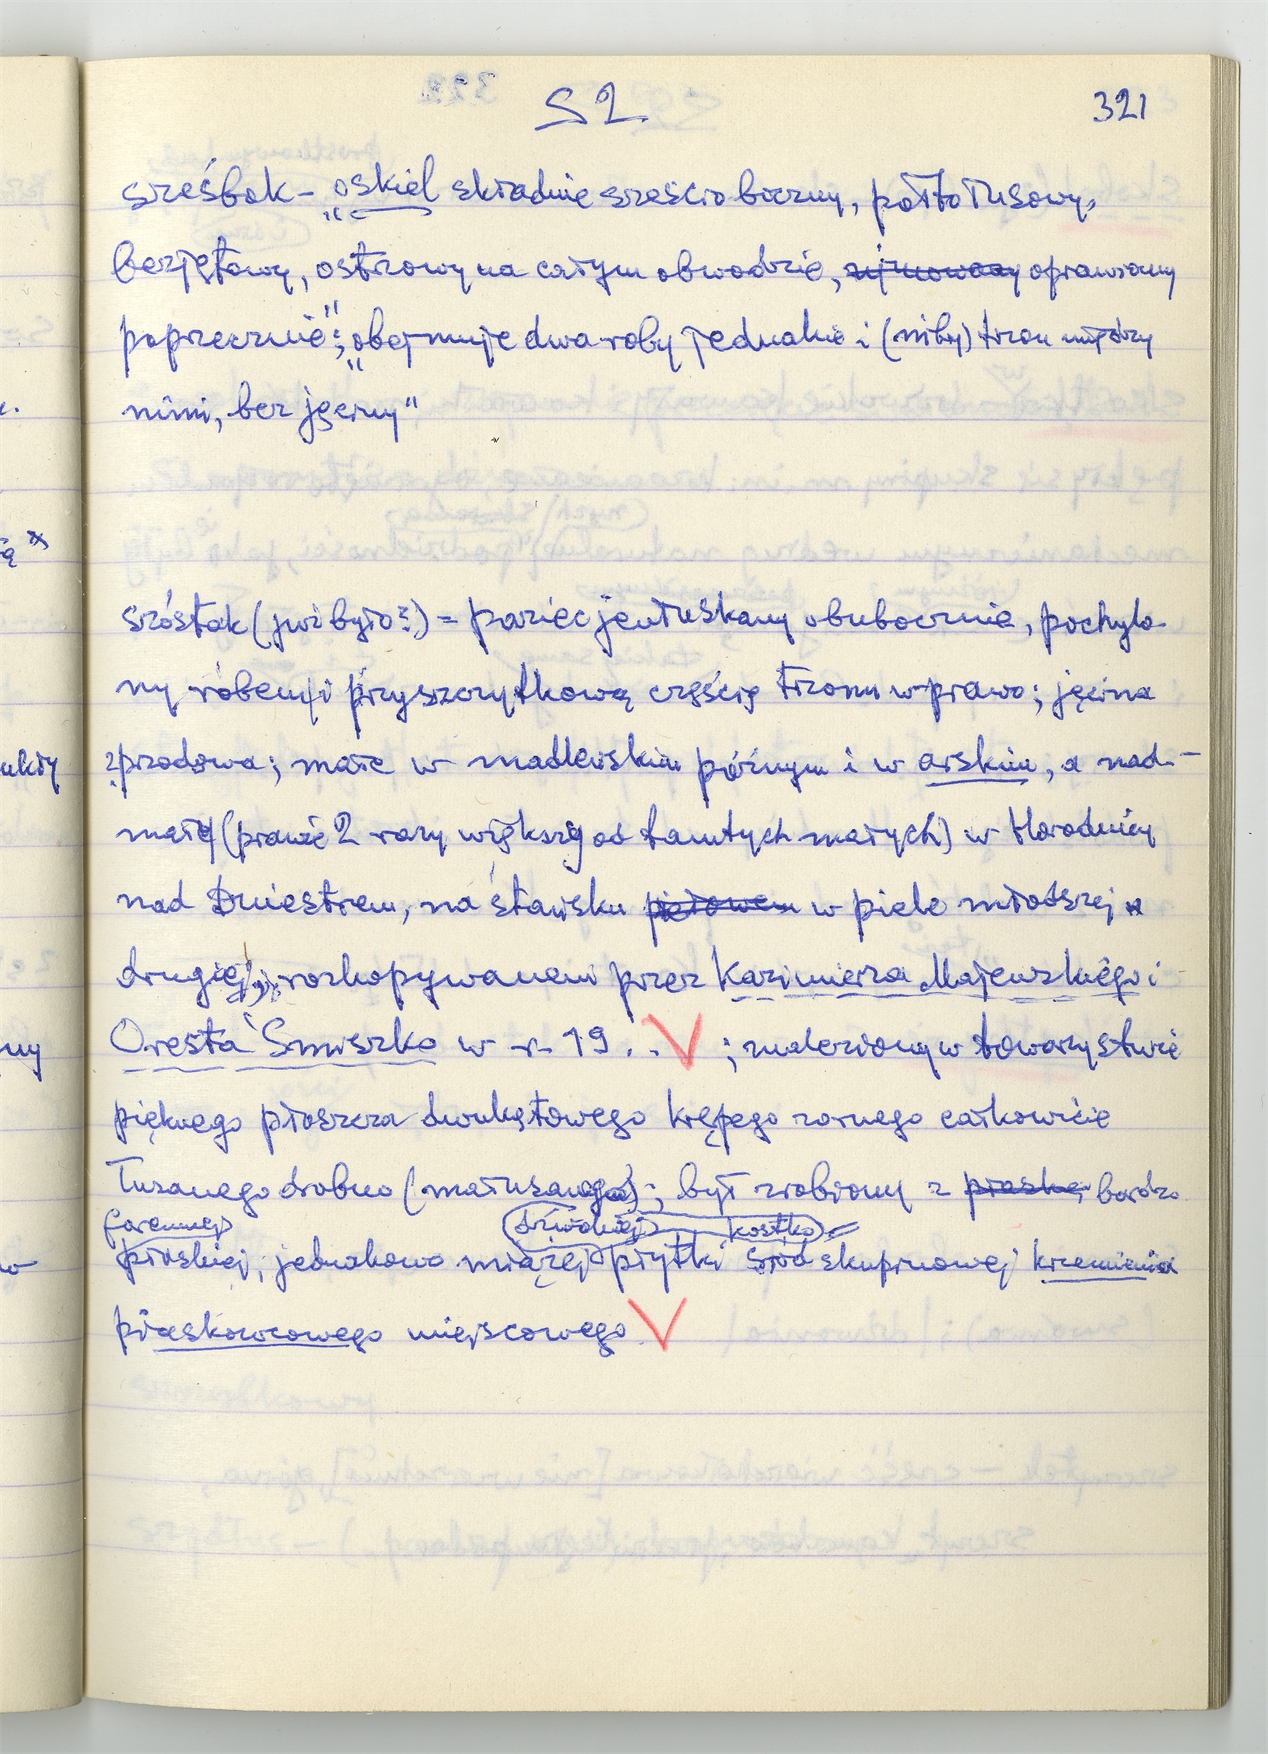 SZ 321
sześbok – „oskiel składnie sześcioboczny, półtołusowy,
bezjętowy, ostrzowy na całym obwodzie, oprawiony
poprzecznie"; „obejmuje dwa roby jednakie i (niby) trzon między
nimi, bez jęciny"
szóstak (już było?) = parzec jenłuskany obubocznie, pochylo-
ny robem i przyszczytkową częścią trzonu w prawo; jęcina
zprzodowa; małe w madleńskim późnym i w arskim, a nad-
mały (prawie 2 razy większy od tamtych małych) w Horodnicy
nad Dniestrem, na stawisku w piele młodszej
drugiej, rozkopywanem przez Kazimierza Majewskiego i
Oresta Smiszko w r. 19 . . V ; znaleziony w towarzystwie
pięknego płoszcza dwukątowego krępego zornego całkowicie
łuzanego drobno ; był zrobiony z bardzo
foremnej dźwiękiej kostko
płaskiej, jednakowo miąższej płytki śród skupinowej krzemienia
piaskowcowego miejscowego V